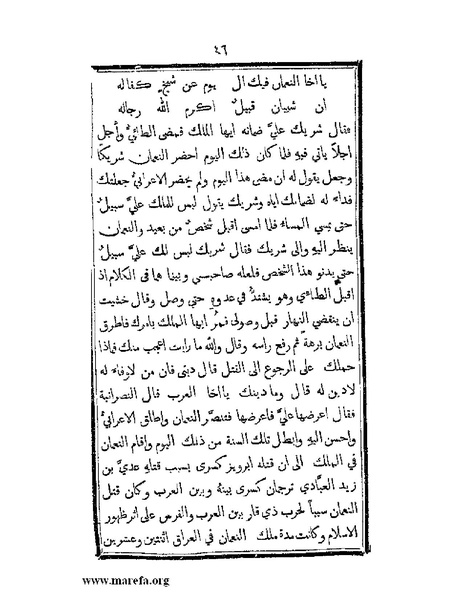 ٤٦
يا اخا النعمان فيك ال يوم عن شيخ كفاله
ان شيبان قبيل اكرم الله رجاله
فقال شريك عليَّ ضمانه ايها الملك فمضى الطائيُّ وأجل
اجلاً ياتي فيه فلما كان ذلك اليوم احضر النعمان شريكًا
وجعل يقول له ان مضى هذا اليوم ولم يحضر الاعرابيُّ جعلتك
فداءً له لضمانك اياه وشريك يقول ليس للملك عليَّ سبيلٌ
حتى يمسي المساء فلما امسى اقبل شخصٌ من بعيد والنعمان
ينظر اليه والى شريك فقال شريك ليس لك عليَّ سبيلٌ
حتى يدنو هذا الشخص فلعله صاحبي وبينا هما في الكلام اذ
اقبل الطاءي وهو يشتدُّ في عدوهِ حتى وصل وقال خشيت
ان ينقضي النهار قبل وصولي فمُرْ ايها الملك بامرك فاطرق
النعمان برهةً ثم رفع راسه وقال والله ما رايت اعجب منك فماذا
حملك على الرجوع الى القتل قال ديني فان من لا وفاء له
لا دين له قال وما دينك يا اخا العرب قال النصرانية
فقال اعرضها عليَّ فاعرضها فتنصَّر النعمان واطلق الاعرابيَّ
واحسن اليه وابطل تلك السنة من ذلك اليوم واقام النعمان
في الملك الى ان قتله ابرويز كسرى بسبب قتله عديَّ بن
زيد العبَّادي ترجمان كسرى بينهُ وبين العرب وكان قتل
النعمان سببًا لحرب ذي قار بين العرب والفرس على اثر ظهور
الاسلام وكانت مدة ملك النعمان في العراق اثنتين وعشرين
www.marefa.org